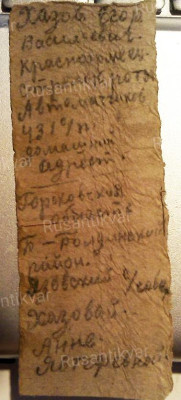 Хазов Егор
Васильевич
красноармеец
роты
Автоматчиков
431 с/п.
домашний
адрест.
Горьковской
область
Б-Болдинской
район.
Язовский с/совет
Хазовай.
Анне
Rusantikvar